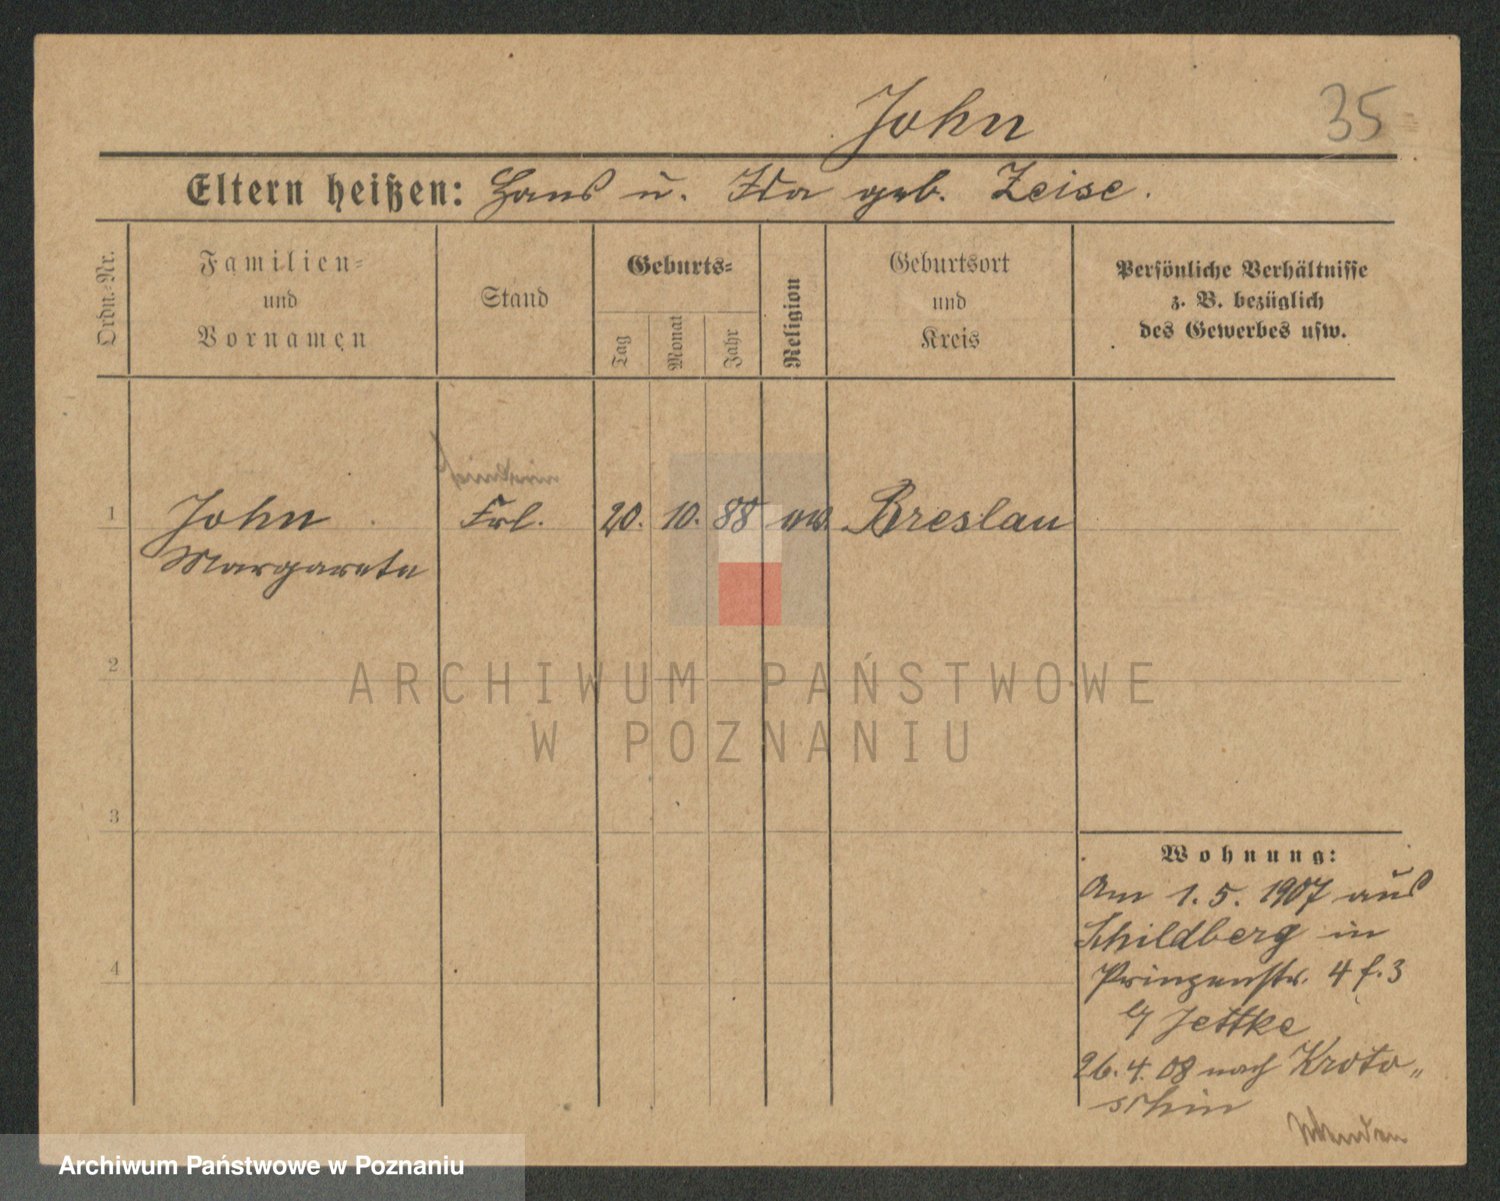 John
35
Eltern heißen: Hans u. Ida geb. Zeise.
Ordn.-Nr.
Familien-
und
Vornamen
Stand
Geburts-
Tag
Monat
Jahr
Religion
Geburtsort
und
Kreis
Persönliche Verhältnisse
z. B. bezüglich
des Gewerbes usw.
1
John
Margarete
Frl.
20. 10. 88 ev.
Breslau
2
3
4
ARCHIWUM PAŃSTWOWE
W POZNANIU
Wohnung:
Am 1.5. 1907 aus
Schildberg in
Prinzenstr. 4 f. 3
b/ Jettke
26.4.08 nach Kroto-
schin
Archiwum Państwowe w Poznaniu